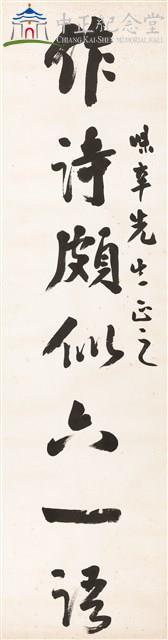 中正紀念堂
CHIANG KAI-SHEK MEMORIAL HALL
味辛先生正之
作詩頗似六一語